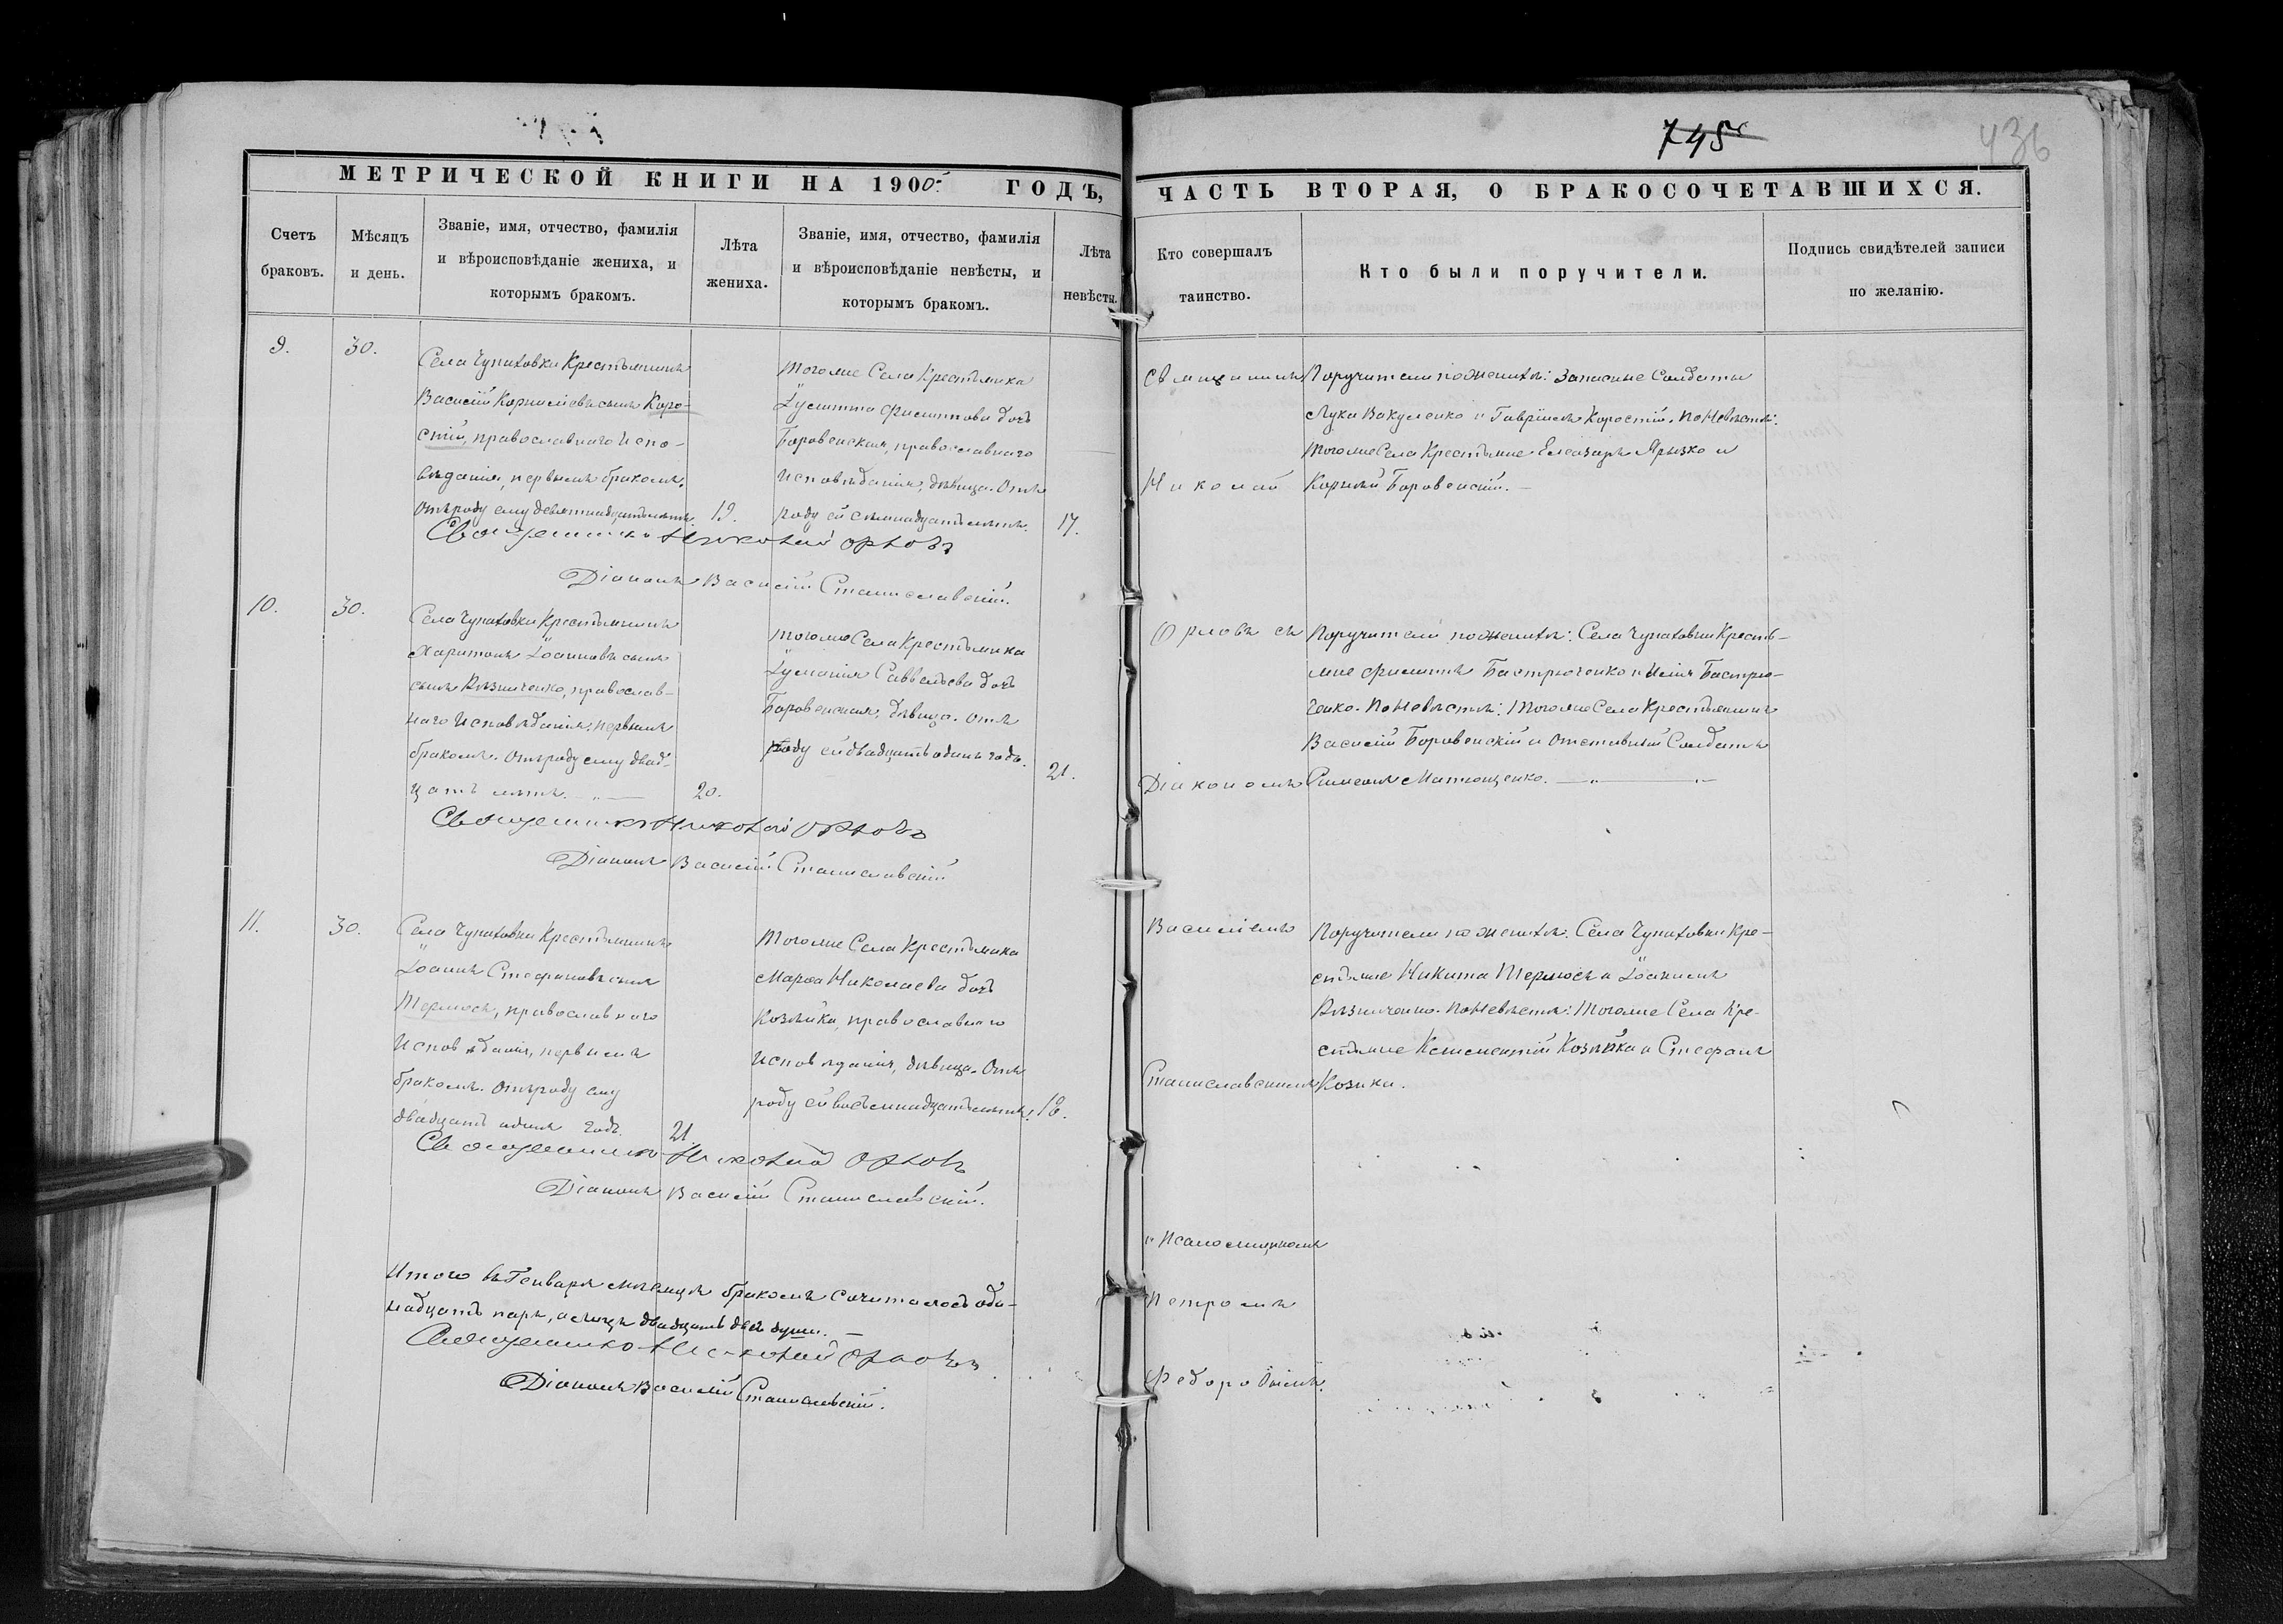 745
436
МЕТРИЧЕСКОЙ КНИГИ НА 1900 ГОДЪ,
ЧАСТЬ ВТОРАЯ, О БРАКОСОЧЕТАВШИХСЯ.
Счетъ браковъ.
Мѣсяцъ и день.
Званіе, имя, отчество, фамилія
и вѣроисповѣданіе жениха, и
которымъ бракомъ.
Лѣта жениха.
Званіе, имя, отчество, фамилія
и вѣроисповѣданіе невѣсты, и
которымъ бракомъ.
Лѣта невѣсты.
Кто совершалъ таинство.
Кто были поручители.
Подпись свидѣтелей записи
по желанію.
9.
30.
Села Чупаховки Крестьянинъ
Василій Корниліевъ сынъ Коро-
стій, православнаго Испо-
вѣданія, первымъ бракомъ.
Отъ роду ему девятнадцать лѣтъ.
19.
Тогоже Села Крестьянка
Филиппова дочь
Боровенская, православнаго
Исповѣданія, дѣвица. Отъ
роду ей семнадцать лѣтъ.
17.
Священникъ Николай Орловъ
Діаконъ Василій Станиславскій.
10.
30.
Села Чупаховки Крестьянинъ
Харитонъ Іоанновъ сынъ
сынъ Рѣзниченко, православ-
наго Исповѣданія, первымъ
бракомъ. Отъ роду ему двад-
цать лѣтъ.
20.
Тогоже Села Крестьянка
Іуліанія Савельева дочь
Боровенская, дѣвица. Отъ
роду ей двадцать одинъ годъ.
21.
Священникъ Николай Орловъ
Діаконъ Василій Станиславскій
11.
30.
Села Чупаховки Крестьянинъ
Іоаннъ Стефановъ сынъ
Термосъ, православнаго
Исповѣданія, первымъ
бракомъ. Отъ роду ему
двадцать одинъ годъ.
21.
Тогоже Села Крестьянка
Марѳа Николаева дочь
Козѣйка, православнаго
Исповѣданія, дѣвица. Отъ
роду ей восемнадцать лѣтъ.
18.
Священникъ Николай Орловъ
Діаконъ Василій Станиславскій.
Итого въ Генварѣ мѣсяцѣ бракомъ сочиталось оди-
надцать паръ, а лицъ двадцать двѣ души.
Священникъ Николай Орловъ
Діаконъ Василій Станиславскій.
Священникъ
Николай
Орловъ съ
Діакономъ
Василіемъ
Станиславскимъ
и Псаломщикомъ
Петромъ
Поручители по женихѣ: Запасные Солдаты
Лука Вакуленко и Гавріилъ Коростій. По Невѣстѣ:
Тогоже Села Крестьяне Елеазаръ Ярызко и
Корнѣй Боровенскій.
Поручители по женихѣ: Села Чупаховки Кресть-
яне Филиппъ Бастрюченко и Илія Бастрю-
ченко. По Невѣстѣ: Тогоже Села Крестьянинъ
Василій Боровенскій и Отставный Солдатъ
Симеонъ Матющенко.
Поручители по женихѣ: Села Чупаховки Кре-
стьяне Никита Термосъ и Іоаннъ
Рѣзниченко. По Невѣстѣ: Тогоже Села Кре-
стьяне Климентій Козѣйка и Стефанъ
Козика.